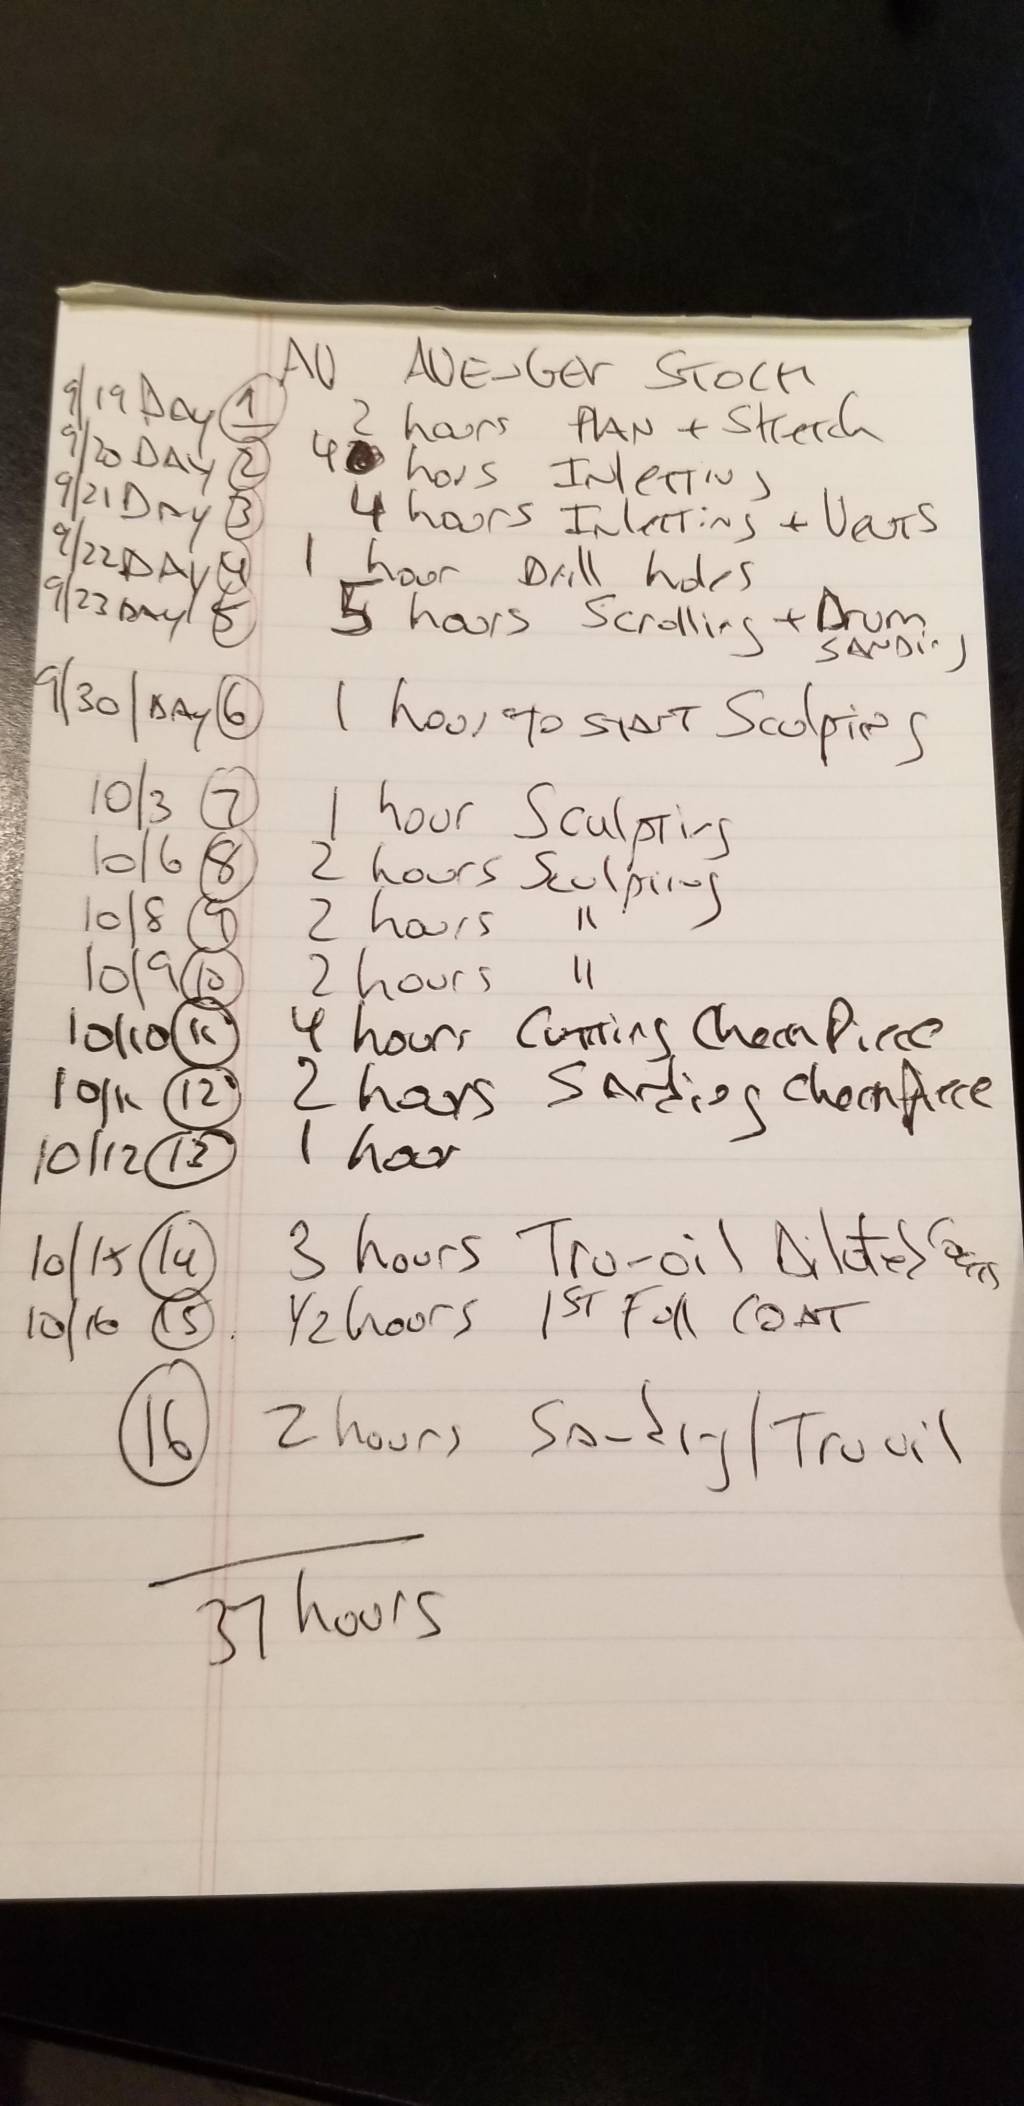 AV AVENGER STOCK
9/19 DAY 1 2 hours PLAN + Sketch
9/20 DAY 2 4 hours Inletting
9/21 DAY 3 4 hours Inletting + Vents
9/22 DAY 4 1 hour Drill holes
9/23 DAY 5 5 hours Scrolling + Drum
SANDing
9/30/DAY 6 1 hour to START Sculpting
10/3 7 1 hour Sculpting
10/6 8 2 hours Sculpting
10/8 9 2 hours "
10/9 10 2 hours "
10/10 11 4 hours Cutting Cheek Piece
10/11 12 2 hours Sanding cheek Piece
10/12 13 1 hour
10/15 14 3 hours Tru-oil Diluted Coats
10/16 15. 1/2 hours 1ST Full COAT
16 2 hours Sanding/Tru oil
37 hours